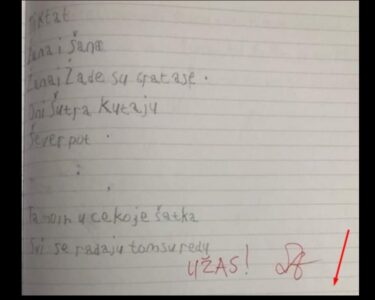 Diktat
Žana i Šana
Žana i Žade su gratase.
Oni šutra kutaju
Sever pot.
Tamoin u cekoje šatka
Svi se radaju tomsuredu
UŽAS!